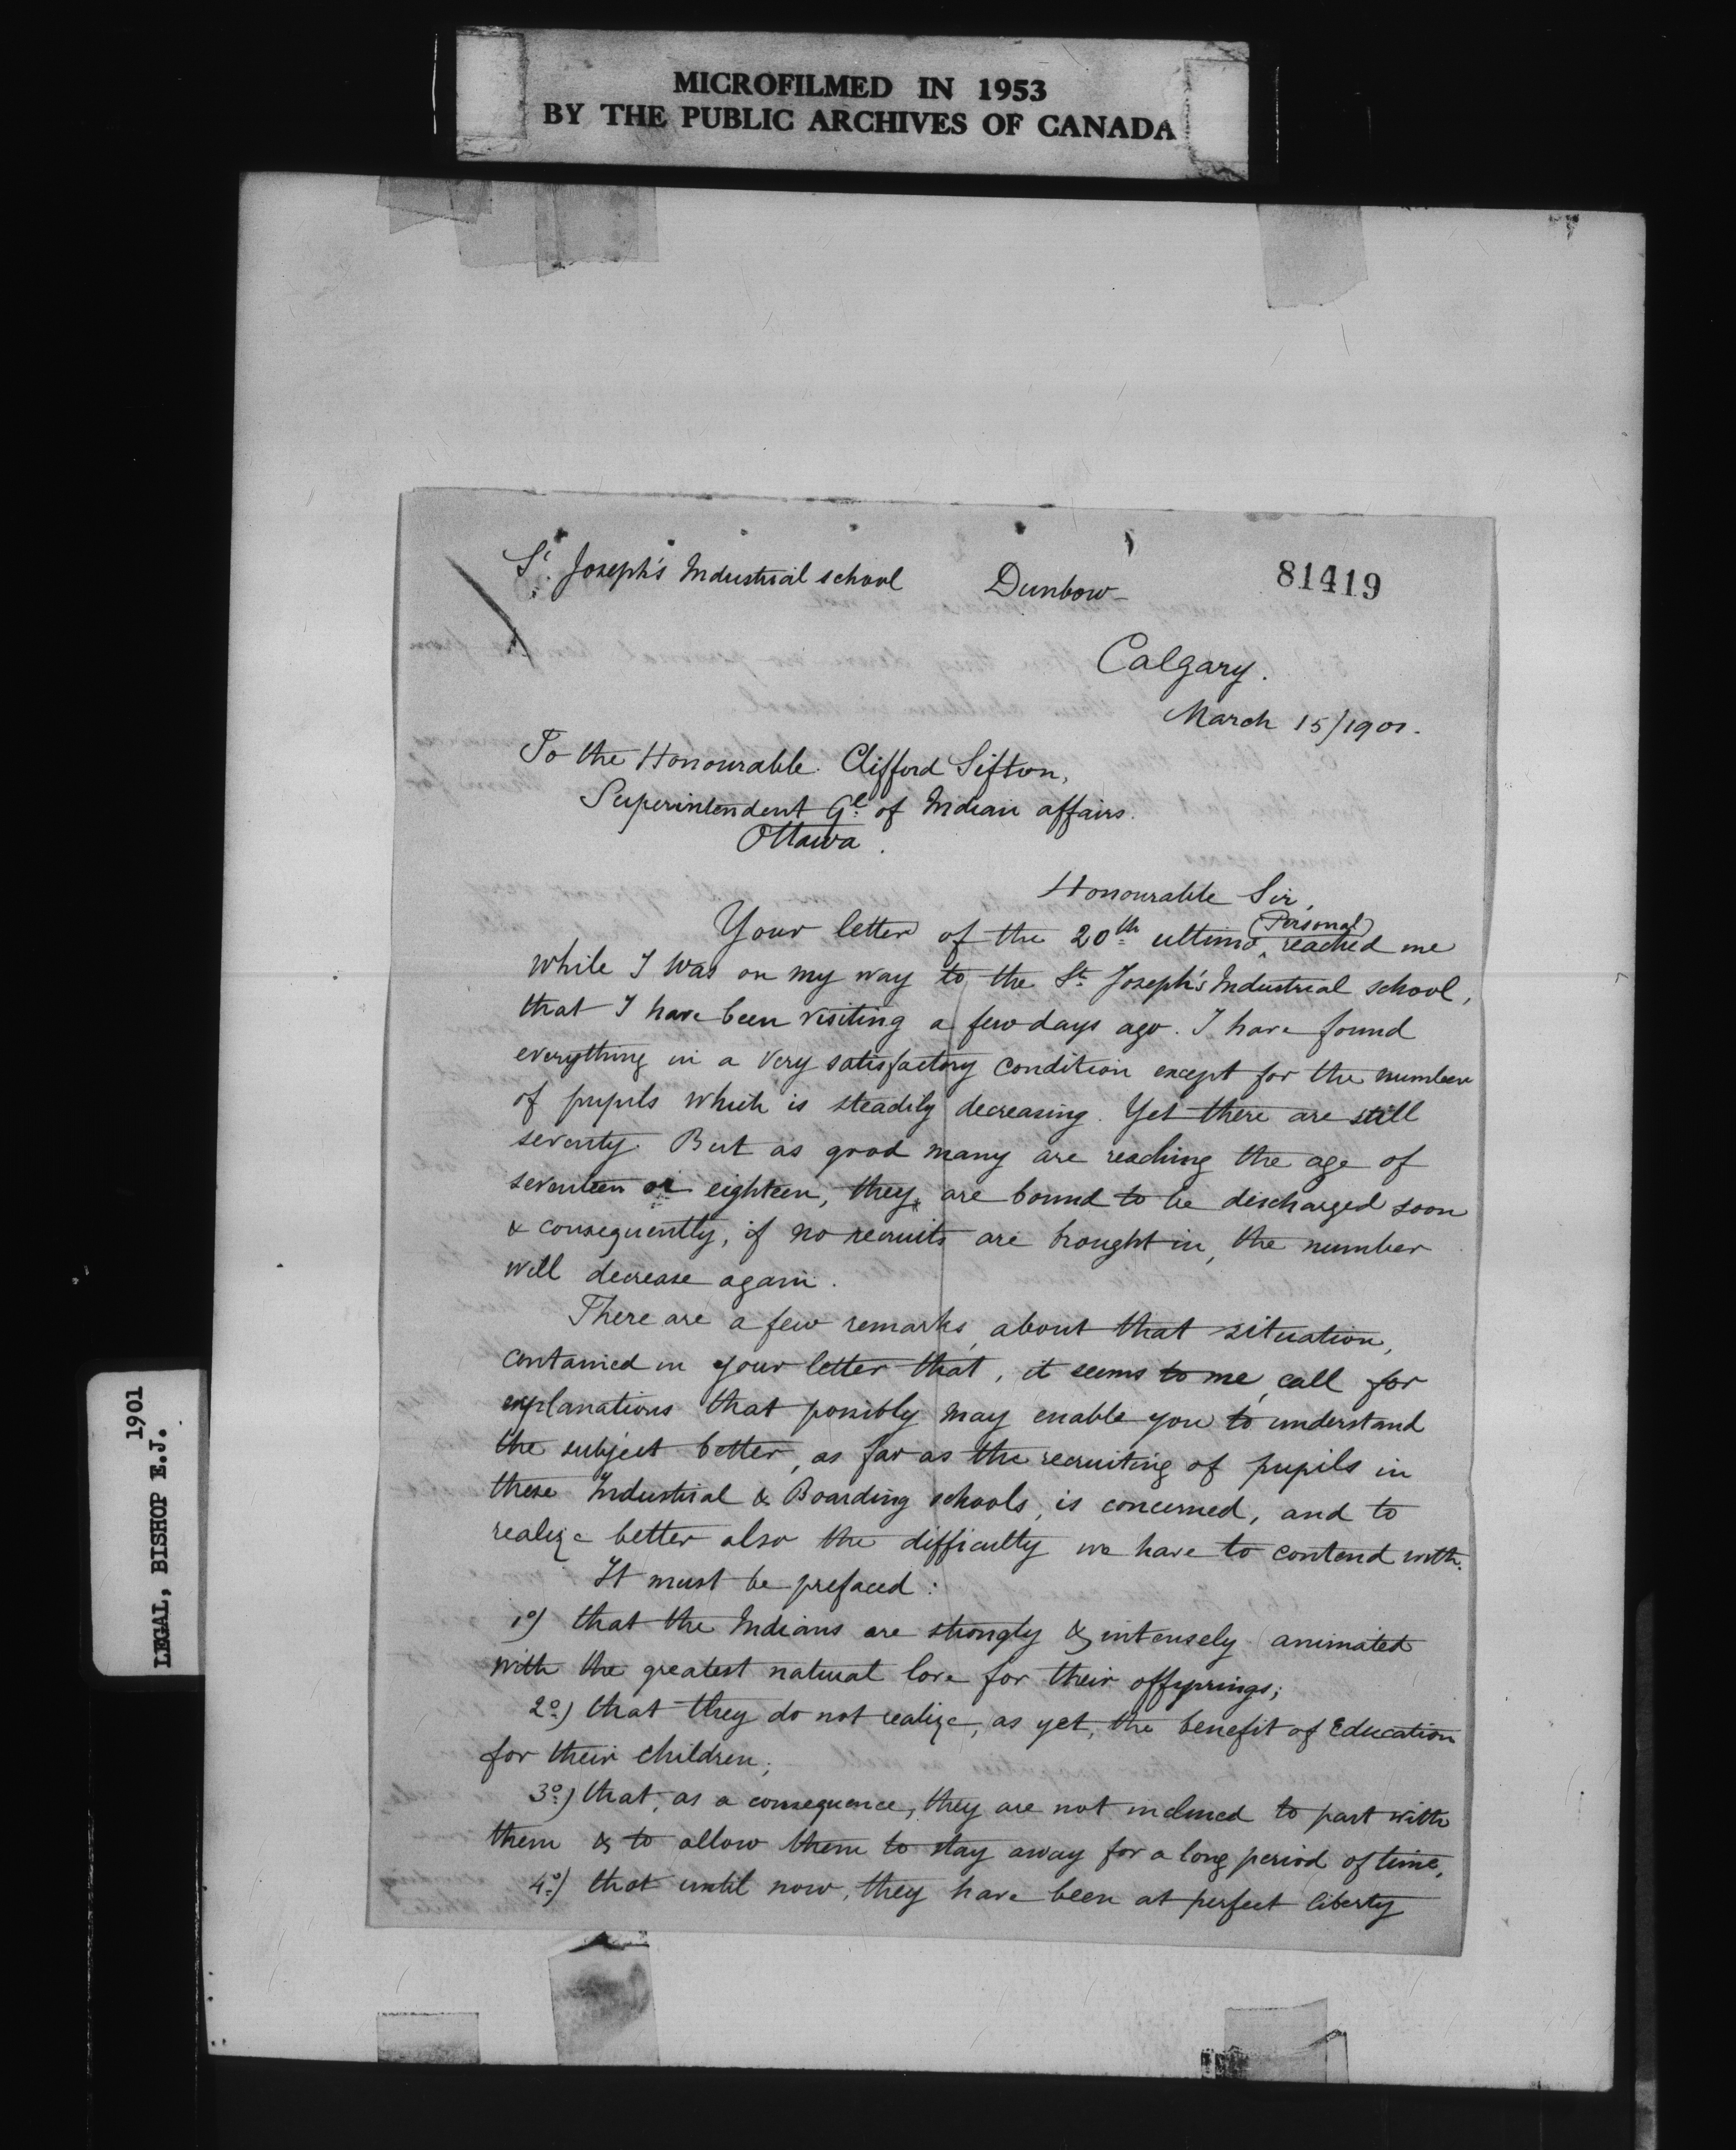 MICROFILMED IN 1953
BY THE PUBLIC ARCHIVES OF CANADA
St. Joseph's Industrial school Dunbow-
81419
Calgary.
March 15/1901.
To the Honourable Clifford Sifton,
Superintendent Gl. of Indian affairs.
Ottawa.
Honourable Sir,
Your letter of the 20th ultimo (Personal) reached me
while I was on my way to the St. Joseph's Industrial school,
that I have been visiting a few days ago. I have found
everything in a very satisfactory condition except for the number
of pupils which is steadily decreasing. Yet there are still
seventy. But as good many are reaching the age of
seventeen or eighteen, they are bound to be discharged soon
& consequently, if no recruits are brought in, the number
will decrease again.
There are a few remarks, about that situation,
contained in your letter that, it seems to me, call for
explanations that possibly may enable you to understand
the subject better, as far as the recruiting of pupils in
these Industrial & Boarding schools, is concerned, and to
realize better also the difficulty we have to contend with.
It must be prefaced:
1o) that the Indians are strongly & intensely animated
with the greatest natural love for their offsprings;
2o) that they do not realize, as yet, the benefit of Education
for their children;
3o) that, as a consequence, they are not inclined to part with
them & to allow them to stay away for a long period of time,
4o) that until now, they have been at perfect liberty
LEGAL, BISHOP E.J.
1901